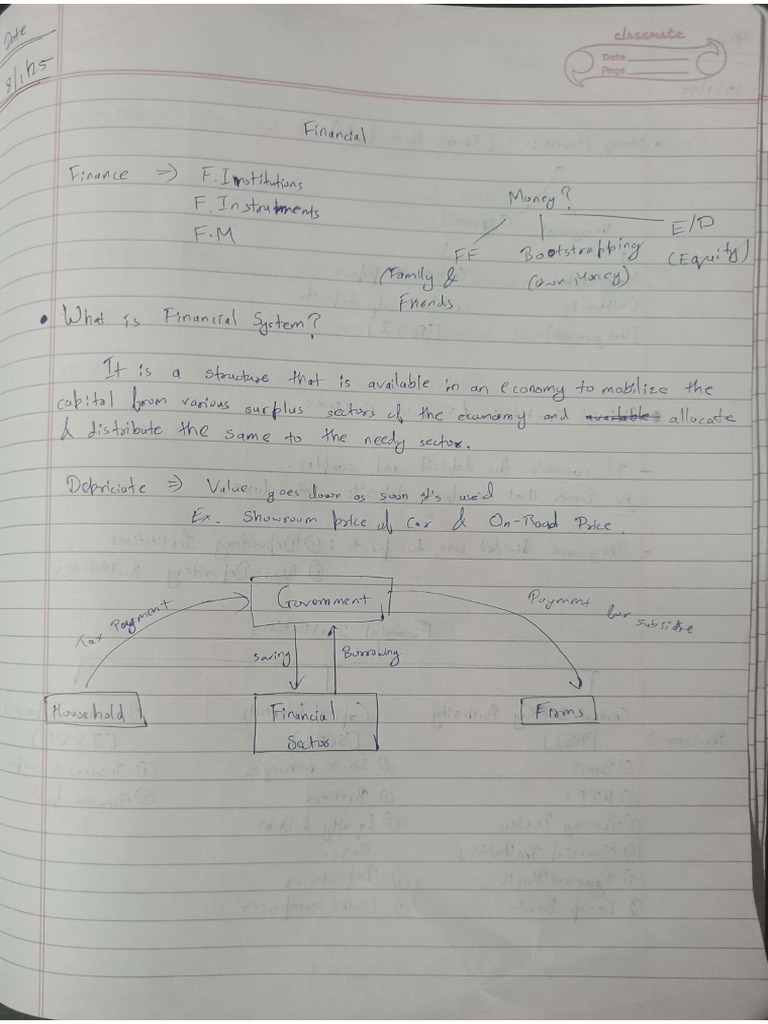 Date
8/1/25
classmate
Date
Page
Financial
Finance ⇒ F. Institutions
F. Instruments
F.M
Money?
FF
(Family &
Friends.
Bootstrapping
(Own Money)
E/D
(Equity)
• What is Financial System?
It is a structure that is available in an economy to mobilize the
capital from various surplus sectors of the economy and available allocate
& distribute the same to the needy sector.
Depriciate ⇒ Value goes down as soon it's used
Ex. Showroom price of car & On-Road Price.
Government
Tax Payment
Payment for subsidse
Saving
Borrowing
Household
Financial
Sector
Firms